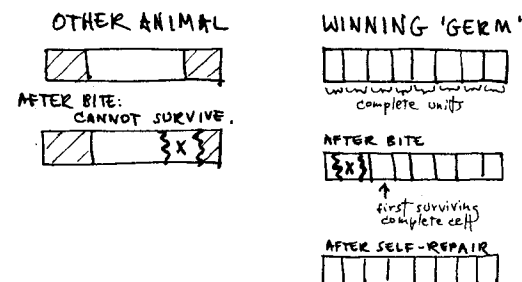 OTHER ANIMAL
AFTER BITE:
CANNOT SURVIVE.
X
WINNING 'GERM'
complete units
AFTER BITE
X
first surviving
complete cell
AFTER SELF-REPAIR